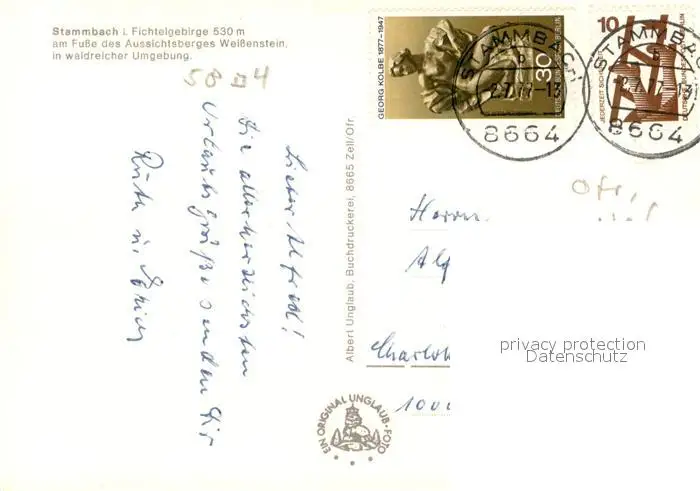 Stammbach i. Fichtelgebirge 530 m
am Fuße des Aussichtsberges Weißenstein,
in waldreicher Umgebung.
58 4
Lieber Alfred!
Die allerherzlichsten
Urlaubsgrüße senden Dir
Ruth u. Erich
Albert Unglaub, Buchdruckerei, 8665 Zell/Ofr.
EIN ORIGINAL UNGLAUB-FOTO
GEORG KOLBE 1877-1947
30
DEUTSCHE BUNDESPOST BERLIN
10
JEDERZEIT SICHERHEIT
DEUTSCHE BUNDESPOST BERLIN
STAMMBACH
b
-2.7.77-13
8664
STAMMBACH
b
-2.7.77-13
8664
Ofr.
Herrn
Alf
Charlot
1000
privacy protection
Datenschutz